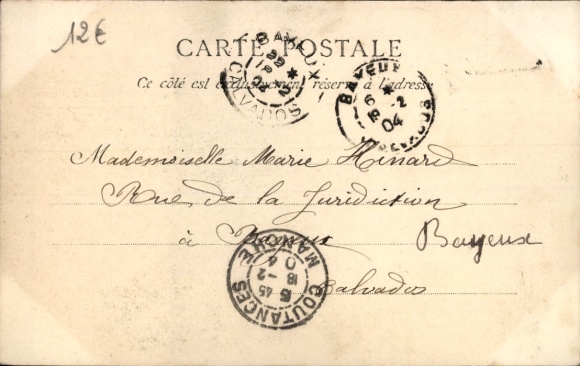 12€
CARTE POSTALE
Ce côté est exclusivement réservé à l'adresse
BAYEUX
CALVADOS
BAYEUX
6 * -2
04
CALVADOS
Mademoiselle Marie Hinard
Rue de la Juridiction
à Bayeux Bayeux
Calvados
COUTANCES
MANCHE
5 45
18 -2
04